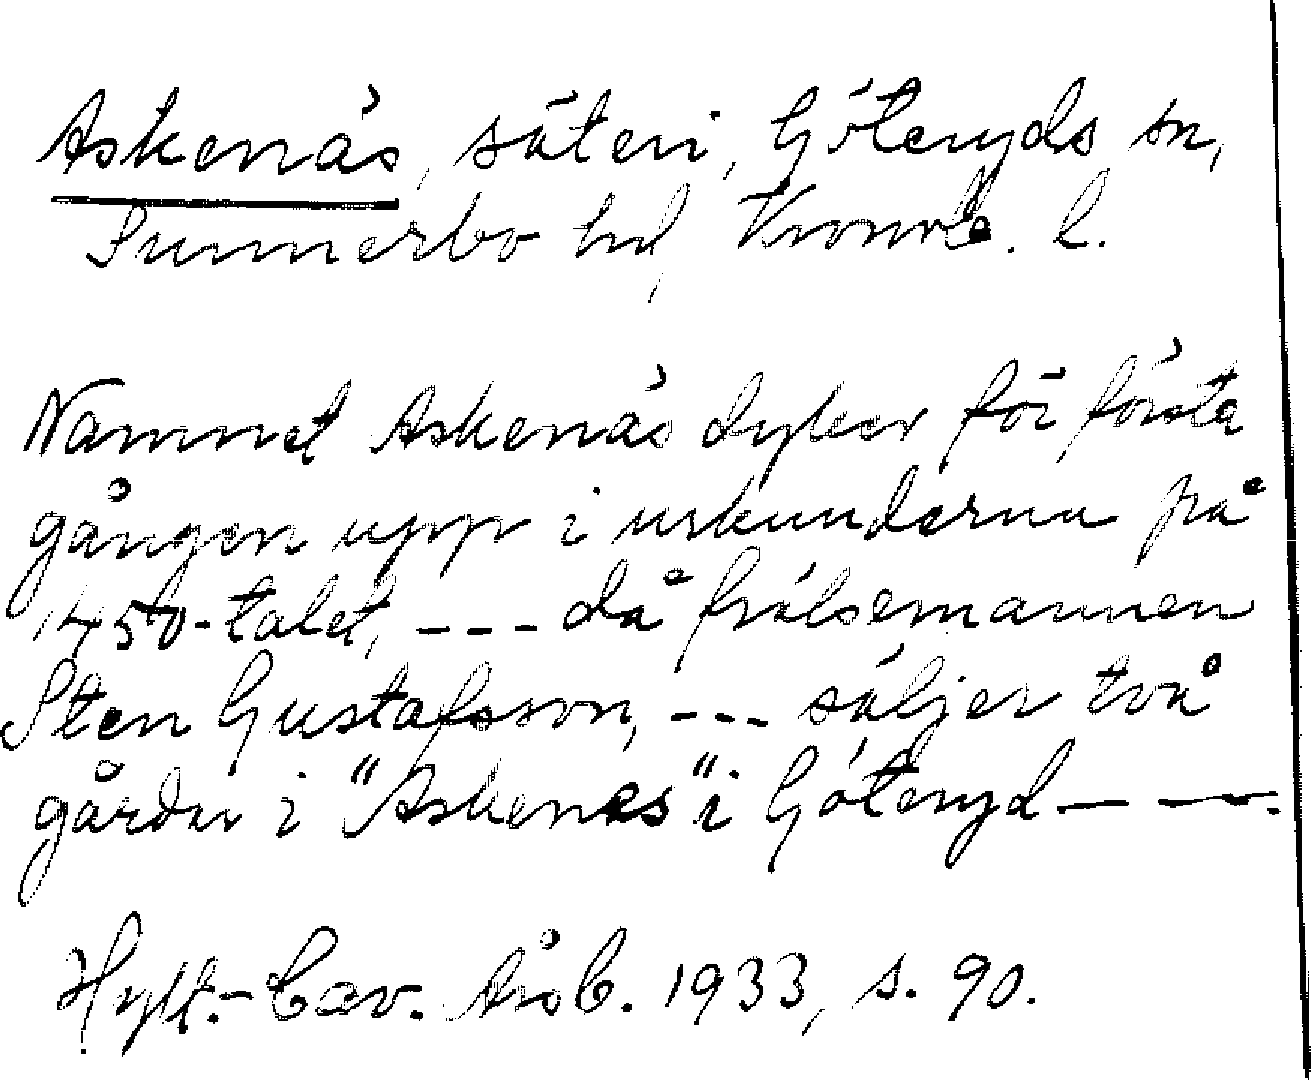 Askenäs, säteri, Göteryds sn,
Sunnerbo hd, Kronob. l.
Namnet Askenäs dyker för första
gången upp i urkunderna på
1450-talet, --- då frälsemannen
Sten Gustafsson, --- säljer två
gårdar i "Askenes" i Göteryd — —.
Hylt.-Cav. Årsb. 1933, s. 90.